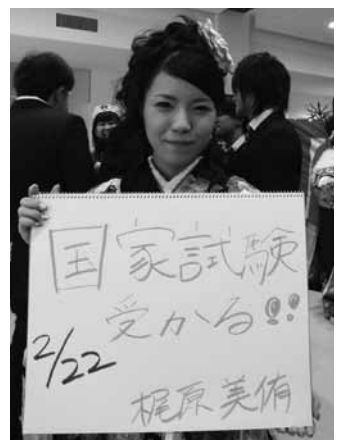 国家試験
受かる!!
2/22
梶原美侑